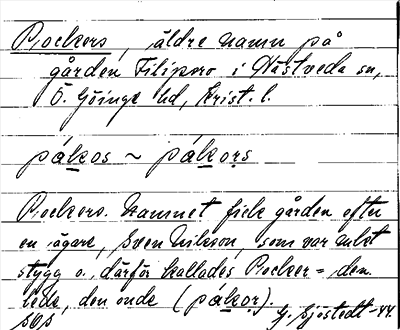 Pockers, äldre namn på
gården Filipsro i Hästveda sn,
Ö. Göinge hd, Krist. l.
pákos ~ pákors
Pockers. Namnet fick gården efter
en ägare, Sven Nilsson, som var enkt
stygg o. därför kallades Pocker = den
lede, den onde (pákor).
sos G. Sjöstedt -44